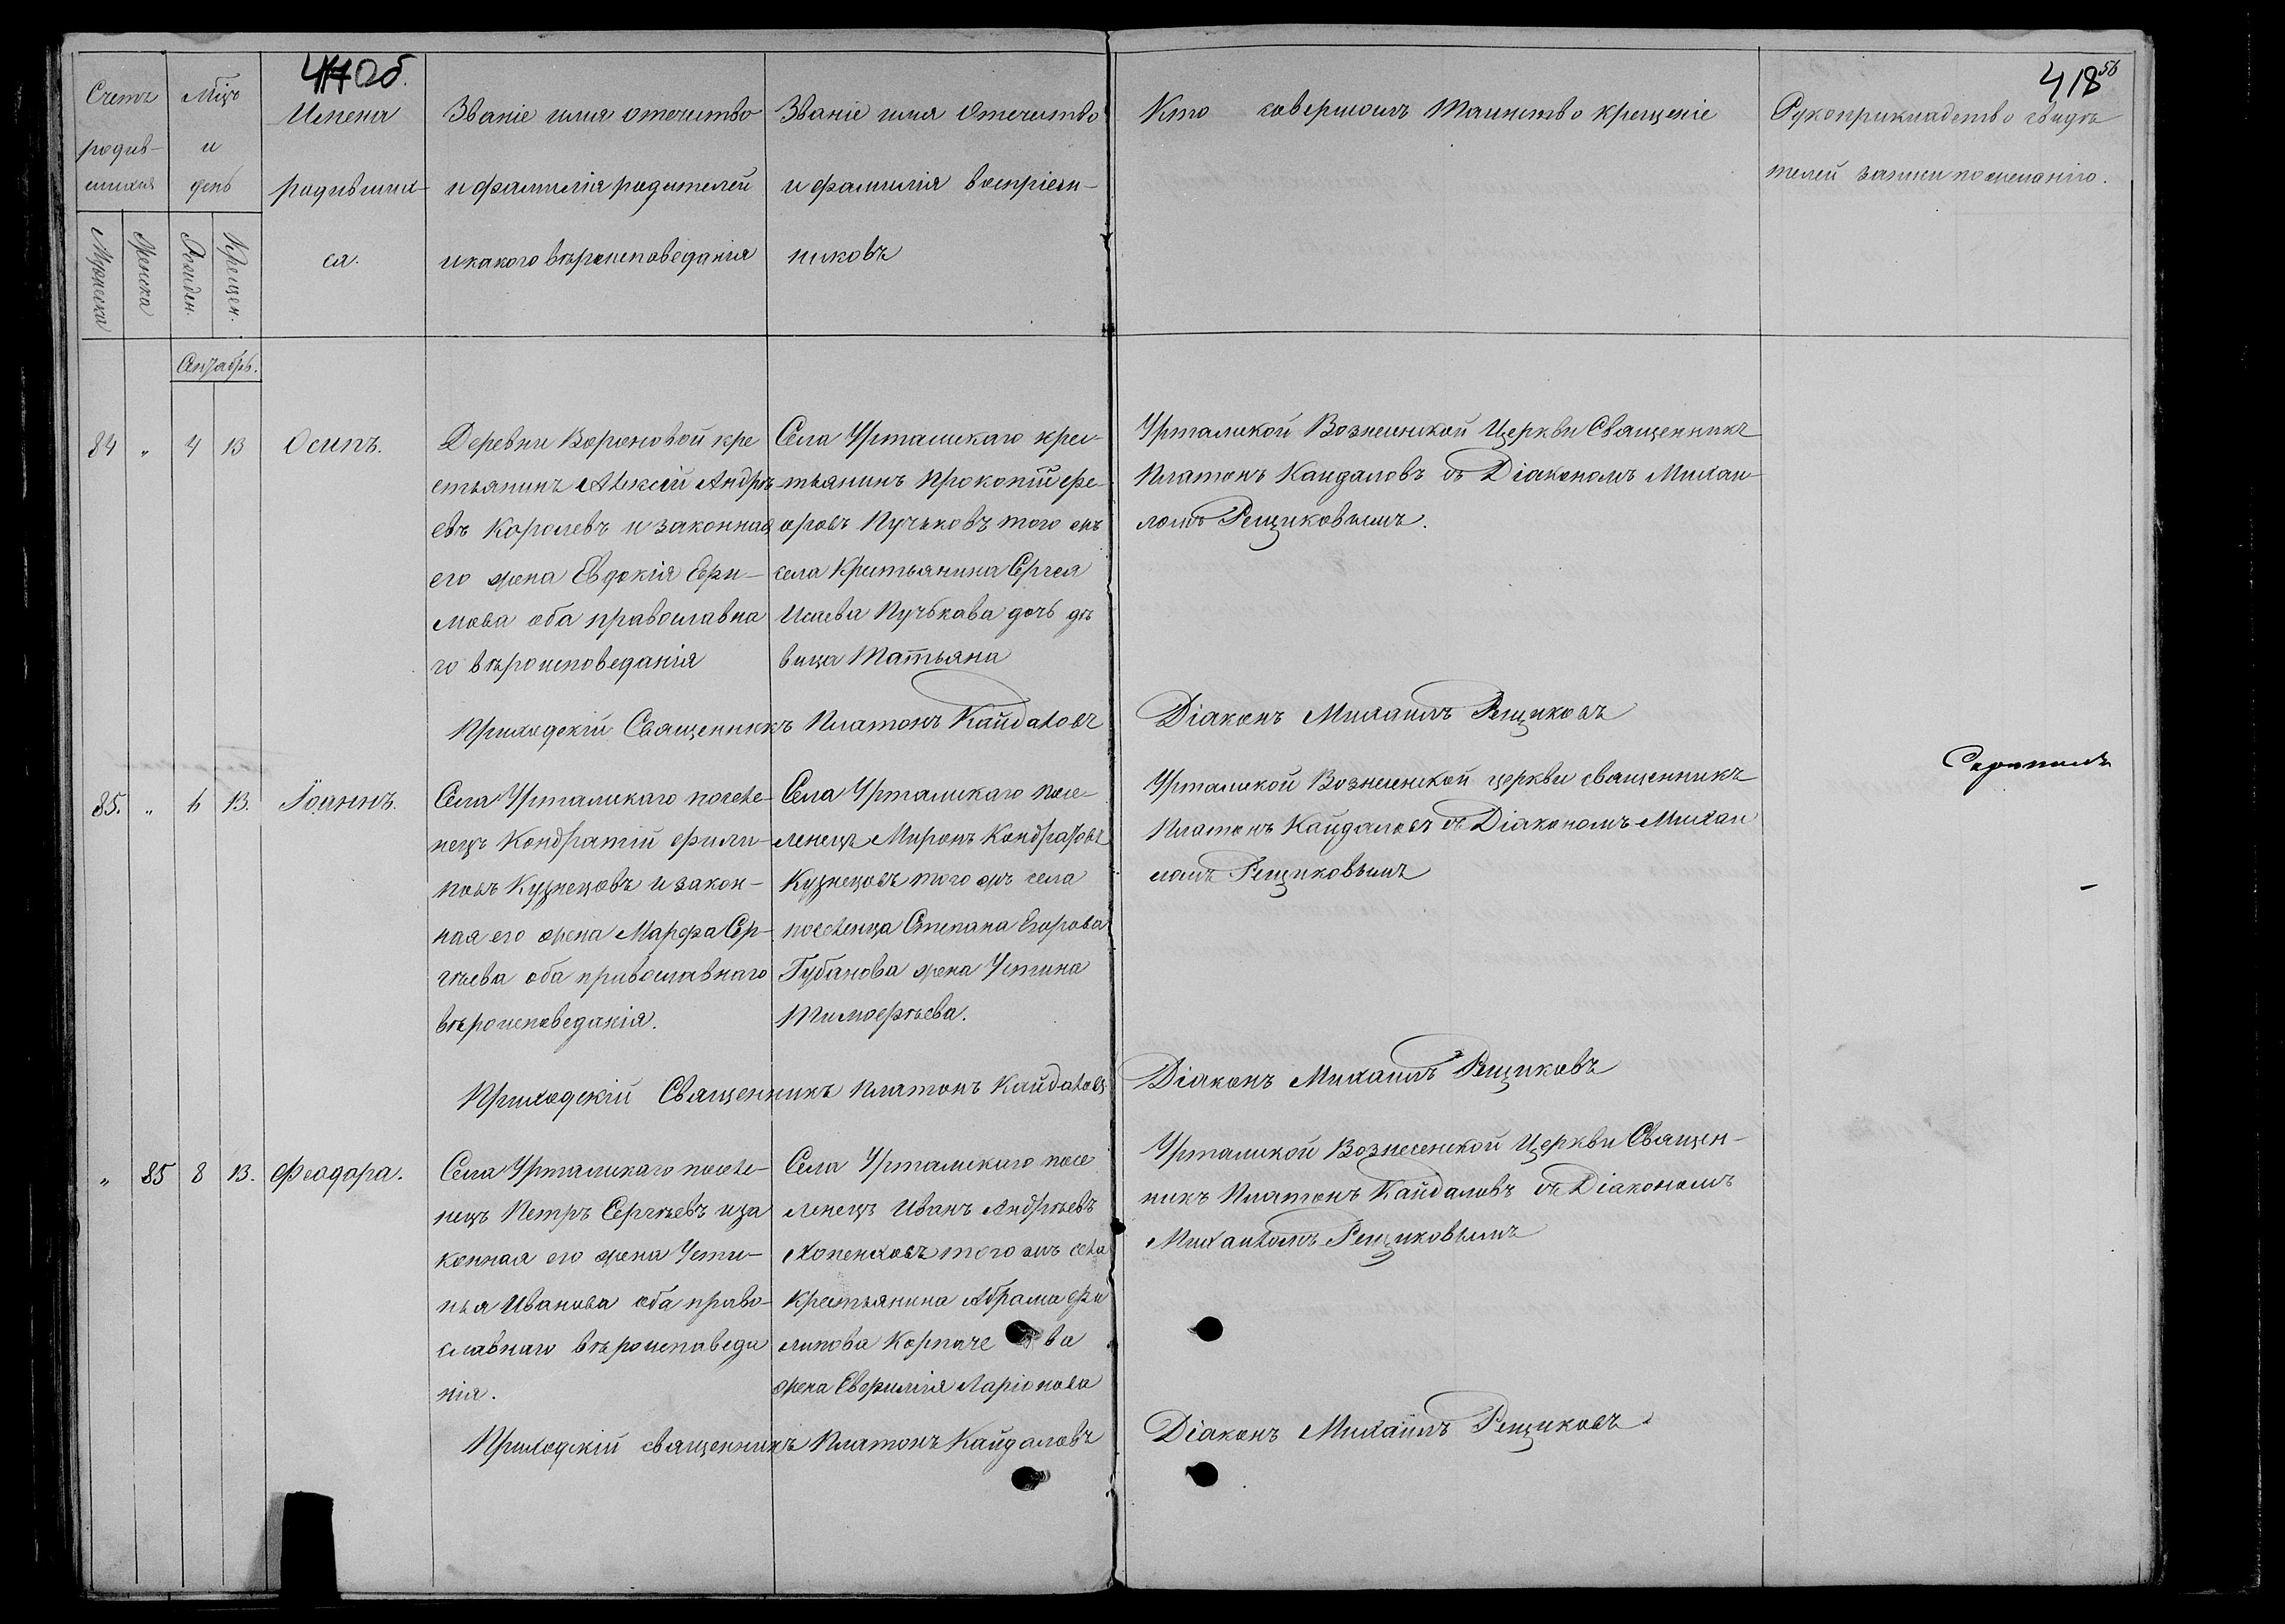 417 Об.
418 56
Счетъ родив-шихся
Мужеска
Женска
Мцъ и день
Рожден.
Крещен.
Имена родивших-ся.
Званіе имя отечество
и фамилія родителей
и какого вѣроисповеданія
Званіе имя отечество
и фамилія воспріем-
никовъ
Кто совершалъ таинство крещеніе
Рукоприкладство свидѣ
телей записи по желанію.
84 " 4 13 Осипъ.
Деревни Вороновой кре
стьянинъ Алексѣй Андрѣ-
евъ Королевъ и законная
его жена Евдокія Ефи-
мова оба православна
го вѣроисповеданія
Села Уртамскаго крес-
тьянинъ Прокопій Фе-
оровъ Пучьковъ того жъ
села Крестьянина Сергея
Исаева Пучькава дочь дѣ
вица Татьяна
Уртамской Вознесенской Церкви Священникъ
Платонъ Кайдаловъ съ Діакономъ Михаи
ломъ Рещиковымъ.
Приходскій Священникъ Платонъ Кайдаловъ
Діаконъ Михаилъ Рещиковъ
85. " 6 13. Іоаннъ.
Села Уртамскаго поселе-
нецъ Кондратій Фили-
повъ Кузнецовъ и закон-
ная его жена Марфа Сер-
гѣева оба православнаго
вѣроисповеданія.
Села Уртамскаго посе-
ленецъ Миронъ Кондратовъ
Кузнецовъ того жъ села
поселенца Степана Егорова
Губанова жена Устина
Тимофѣева.
Уртамской Вознесенской церкви священникъ
Платонъ Кайдаловъ съ Діакономъ Михаи
ломъ Рещиковымъ
Приходскій Священникъ Платонъ Кайдаловъ
Діаконъ Михаилъ Рещиковъ
" 85 8 13. Феодора.
Села Уртамскаго поселе-
нецъ Петръ Сергѣевъ и за
конная его жена Усти-
нья Иванова оба право-
славнаго вѣроисповеда
нія.
Села Уртамскаго посе
ленецъ Иванъ Андрѣевъ
того жъ села
Крестьянина Абрама Фи
липова
жена Евфимія Ларіонова
Уртамской Вознесенской Церкви Священ-
никъ Платонъ Кайдаловъ съ Діакономъ
Михаиломъ Рещиковымъ
Приходскій священникъ Платонъ Кайдаловъ
Діаконъ Михаилъ Рещиковъ